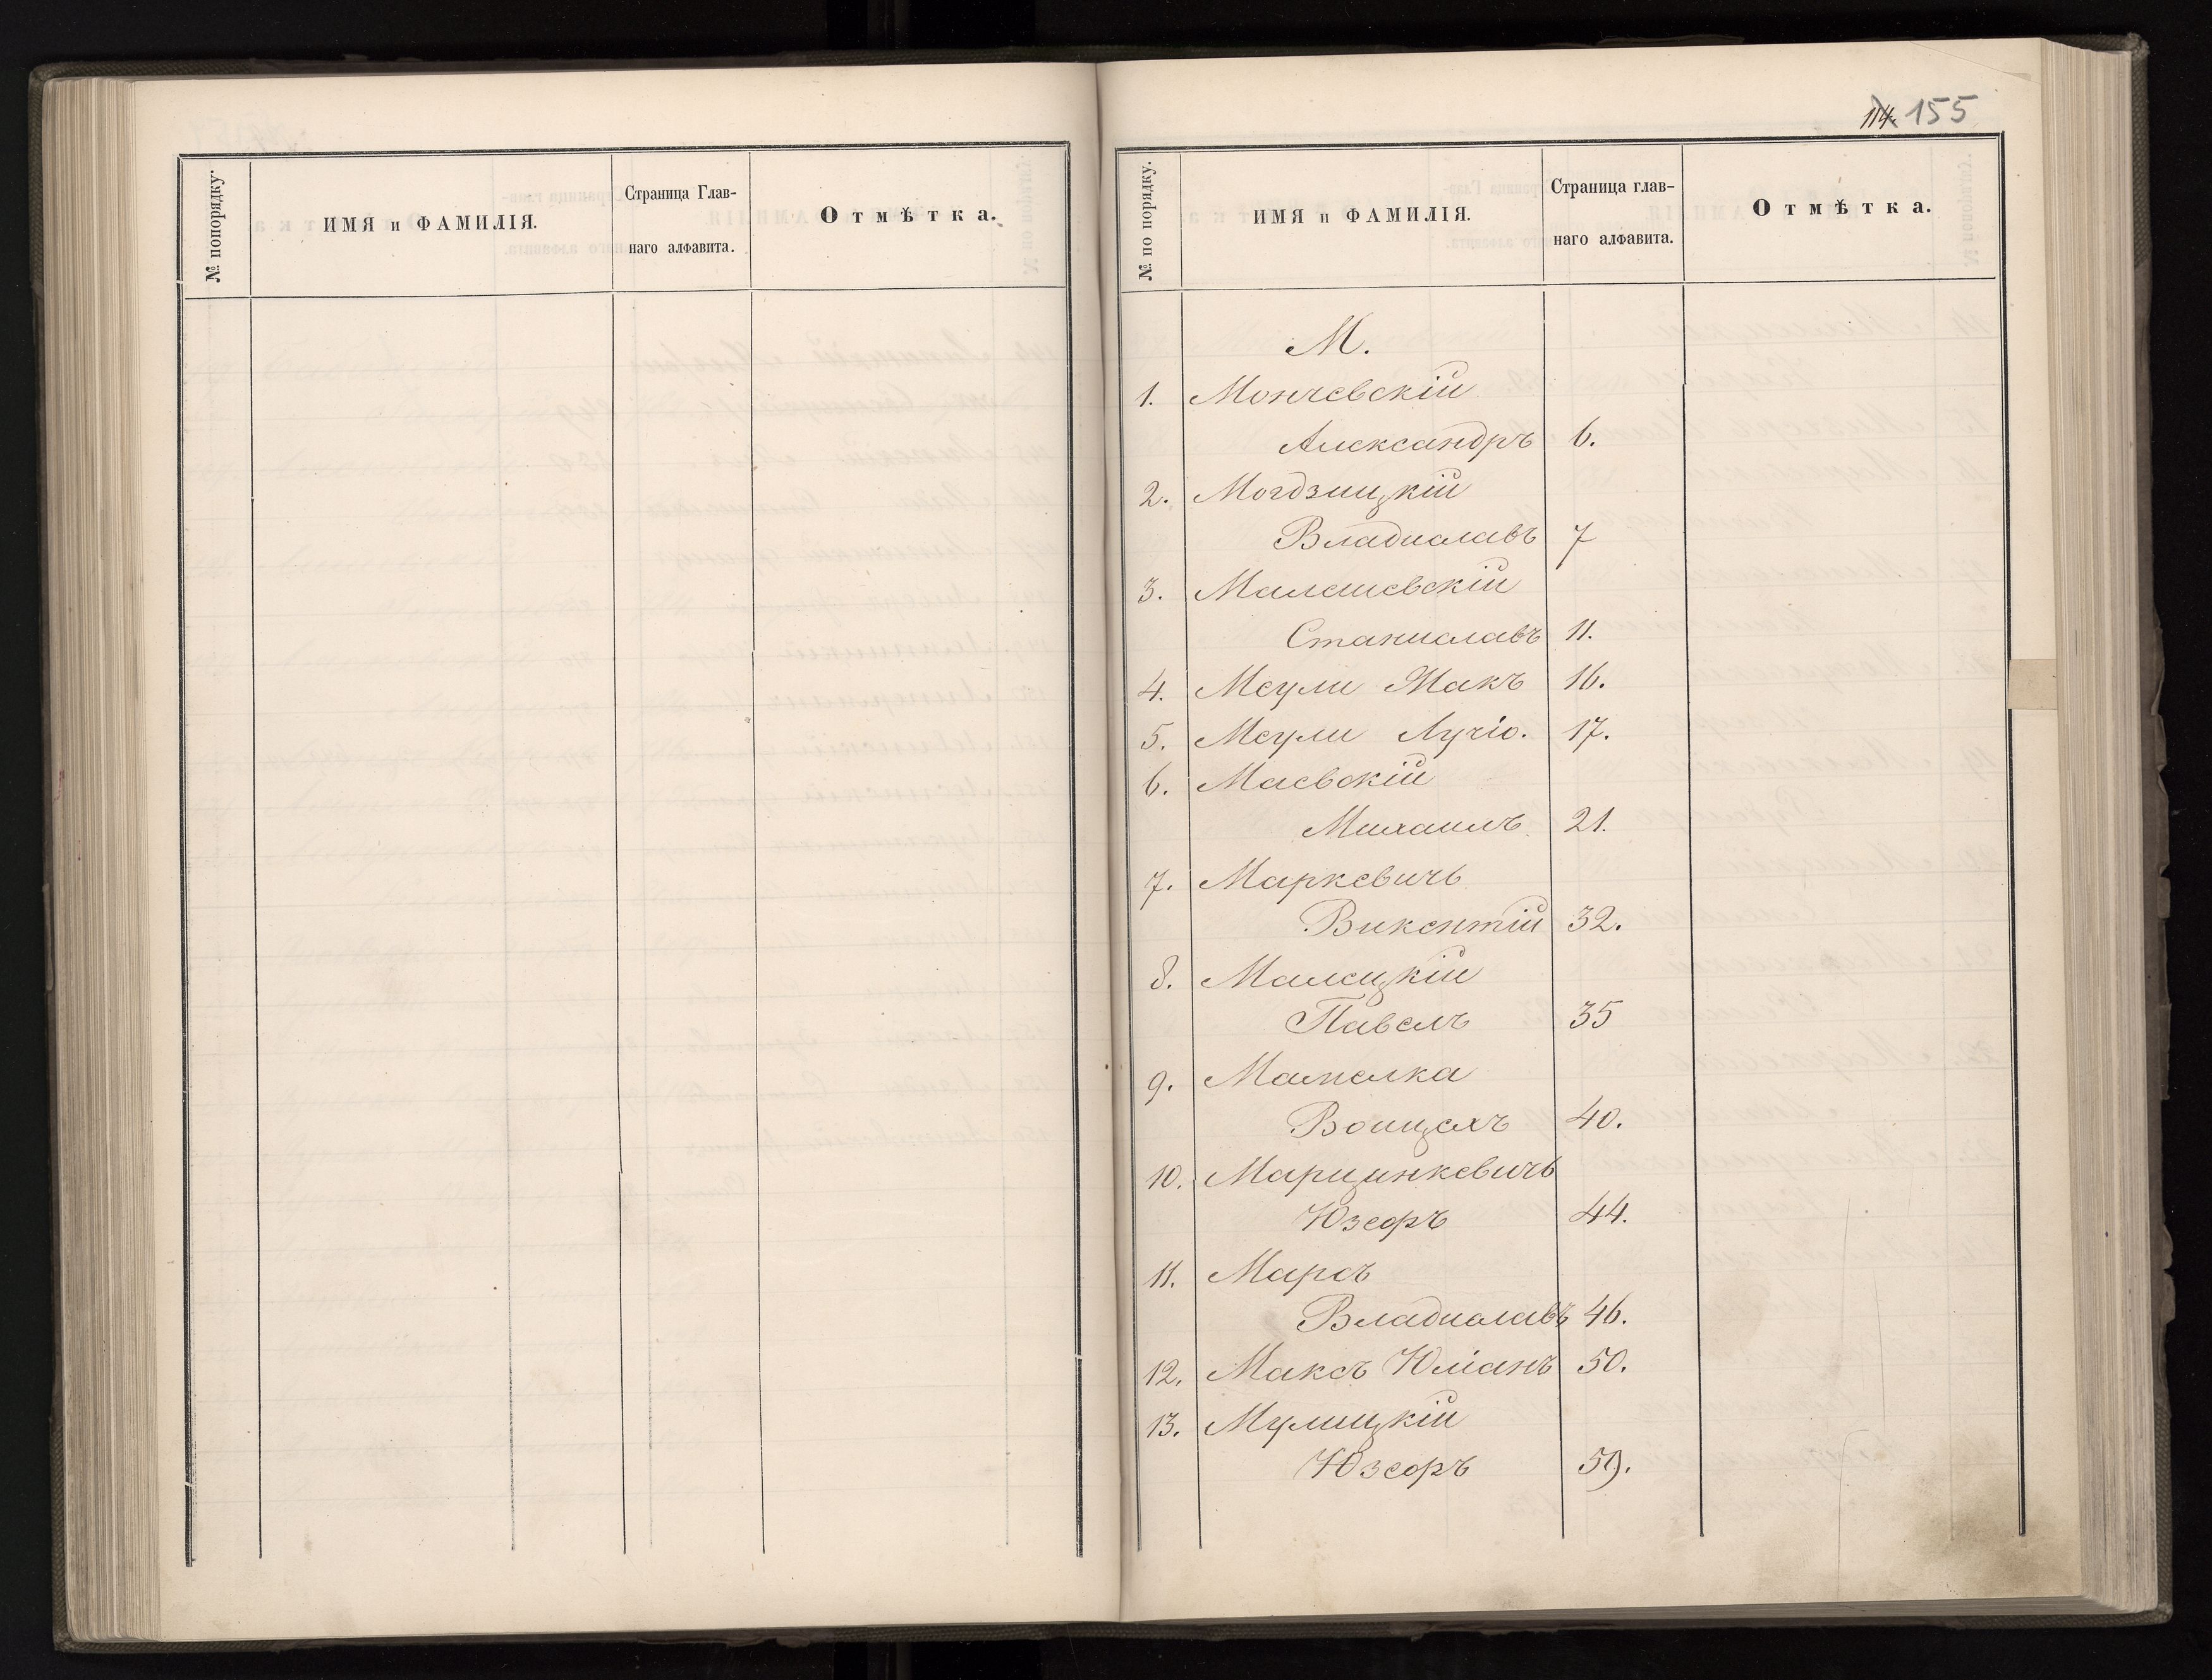 № попорядку.
ИМЯ и ФАМИЛІЯ.
Страница Глав-
наго алфавита.
Отмѣтка.
114. 155
№ по порядку.
ИМЯ и ФАМИЛІЯ.
Страница глав-
наго алфавита.
Отмѣтка.
М.
1. Мончевскій
Александръ 6.
2. Могдзицкій
Владиславъ 7
3. Малешевскій
Станиславъ 11.
4. Меули Макъ 16.
5. Меули Лучіо. 17.
6. Маевскій
Михаилъ 21.
7. Маркевичъ
Викентій 32.
8. Малецкій
Павелъ 35
9. Мамелка
Войцехъ 40.
10. Марцинкевичъ
Юзефъ 44.
11. Марсъ
Владиславъ 46.
12. Максъ Юліанъ 50.
13. Мулицкій
Юзефъ 59.